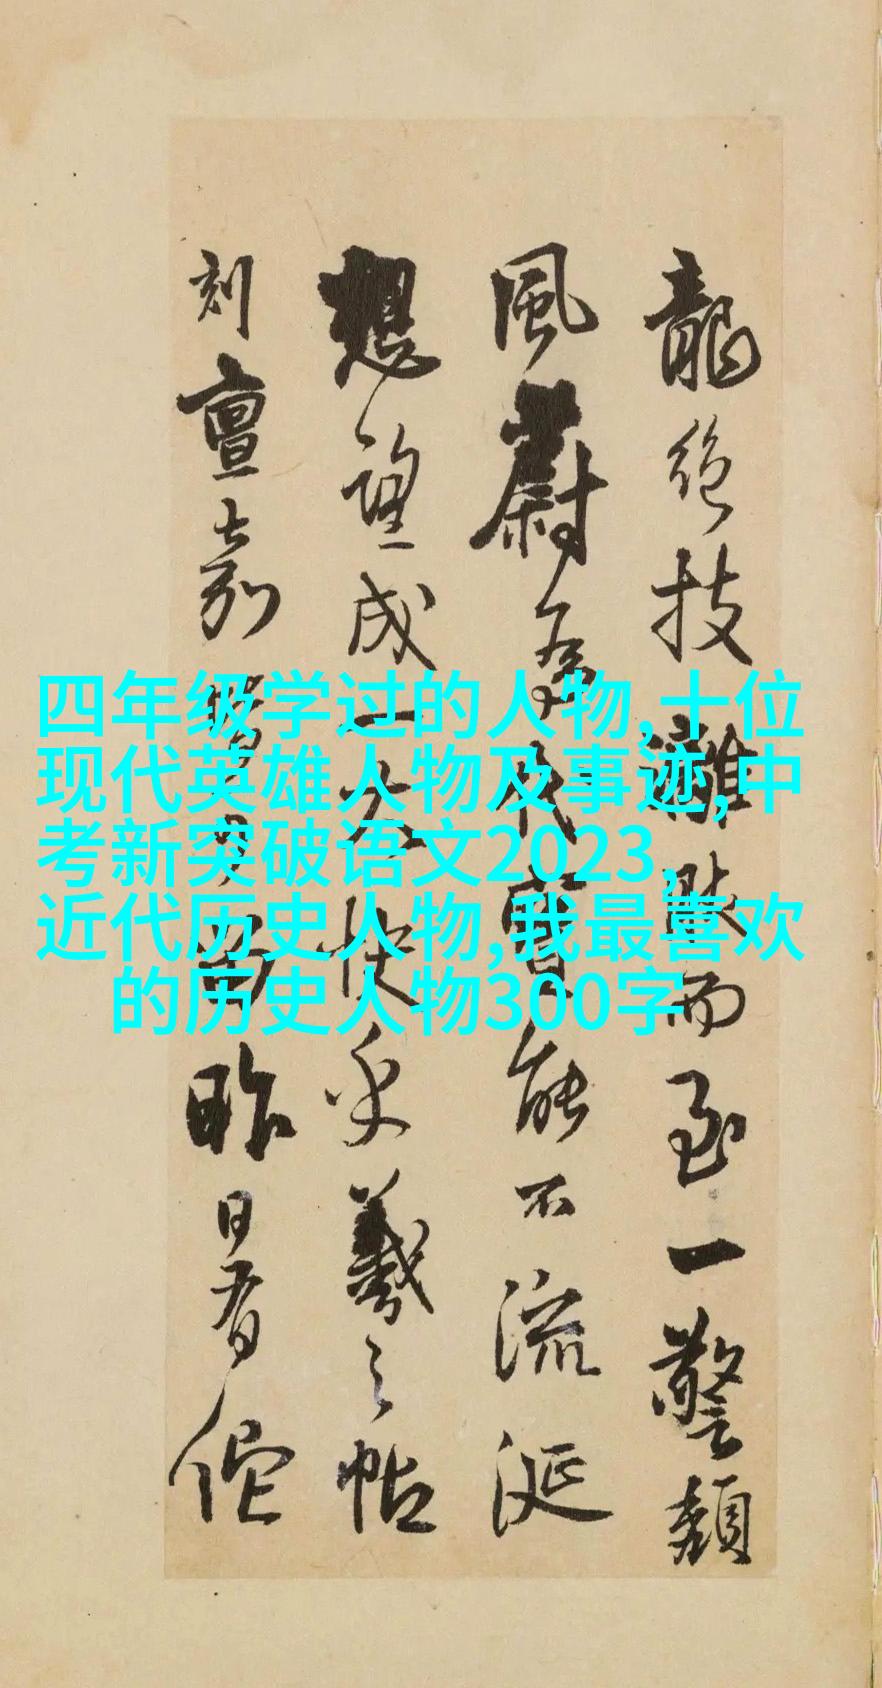 四年级学过的人物,十位
现代英雄人物及事迹,中
考新突破语文2023,
近代历史人物,我最喜欢
的历史人物300字
龍絕技難而至一警
風蔚為代寶能不流涎
想望成一大快乎羲之帖
刻亶嘉昨日有佗